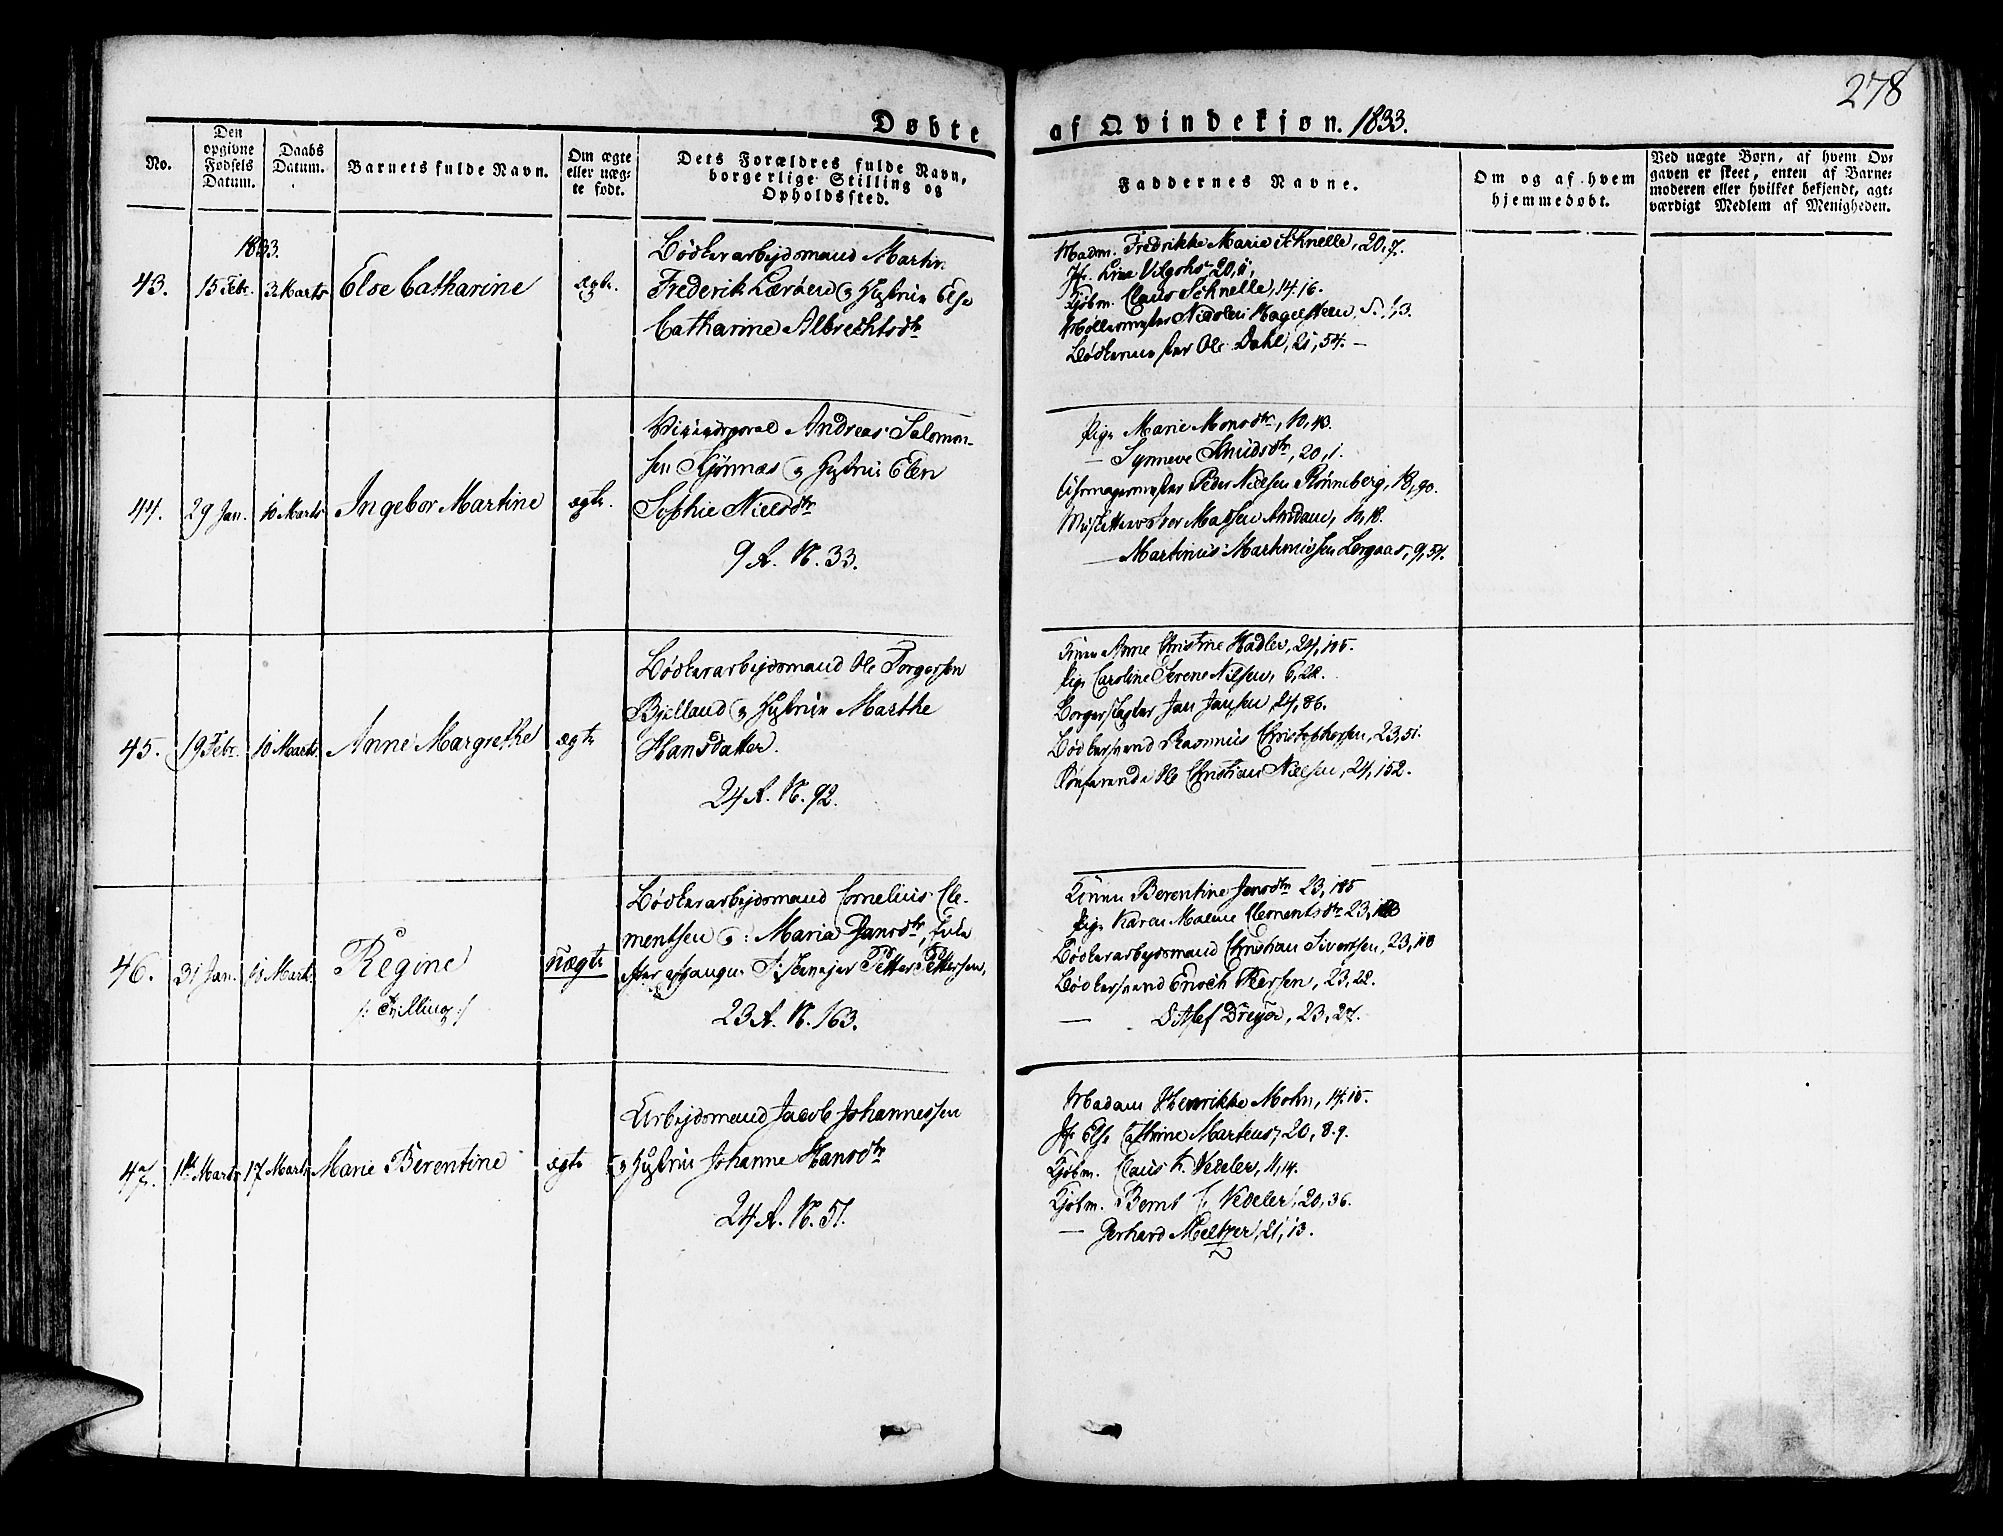 278
Døbte af Qvindekjøn. 1833.
No.
Den opgivne Fødsels Datum.
Daabs Datum.
Barnets fulde Navn.
Om ægte eller uæg- te født.
Dets Forældres fulde Navn, borgerlige Stilling og Opholdssted.
Faddernes Navne.
Om og af hvem hjemmedøbt.
Ved uægte Børn, af hvem Op- gaven er skeet, enten af Barne- moderen eller hvilket bekjendt, agt- værdigt Medlem af Menigheden.
1833.
43. 15 Febr. 3 Marts Else Catharine ægte.
Bødkerarbejdsmand Martin
Frederik og Hustrue Else
Catharine Albrechtsdtr
Madm. Fredrikke Marie Schnelle, 20, 7.
Jf. Lina
Kjøbm. Claus Schnelle, 14. 16.
Møllermester Nicolai
Bødkermester Ole Dahl, 21, 54. —
44. 29 Jan. 10 Marts Ingebor Martine ægte.
Andreas Salomon-
sen og Hustrue Elen
Sophie Nielsdtr
9 R. N. 33.
Pige Marie Monsdtr, 10, 40.
— Synneve Knudsdtr, 20, 1.
Uhrmagermester Peder Nielsen Rønneberg, 18, 90.
Musketteer Iver Madsen 10, 18.
— Martinus Martinussen 9, 54.
45. 19 Febr. 10 Marts Anne Margrethe ægte
Bødkerarbejdsmand Ole Torgersen
Bjelland og Hustrue Marthe
Hansdatter.
24 R. N. 92.
Kone Anne Christine Hadler, 24, 105.
Pige Caroline Serene Nilsen, 6, 28.
Borger Jan Jansen, 24, 86.
Bødkersvend Rasmus Christophersen, 23, 51.
Christian Nielsen, 24, 152.
46. 31 Jan. 10 Marts Regine uægte
/: Tvilling :/
Bødkerarbejdsmand Cornelius Cle-
mentsen og Maria Jansdtr,
Petter Pettersen,
23 R. N. 163.
Konen Berentine Jansdtr 23, 185
Pige Karen Malene Clementsdtr 23,
Bødkerarbejdsmand Christian Sivertsen, 23, 118
Bødkersvend Enoch Iversen, 23, 22.
— Ditlef Dreyer, 23, 27.
47. 1ste Marts 17 Marts Marie Berentine ægte
Arbejdsmand Jacob Johannessen
og Hustrue Johanne Hansdtr
24 R. N. 51.
Madam Henrikke Mohn, 14. 15.
Jf. Else Cathrine Martens, 20, 8. 9.
Kjøbm. Claus K. Vedeler, 11, 14.
Kjøbm. Bernt C. Vedeler, 20, 36.
— Gerhard Meltzer, 21, 13.